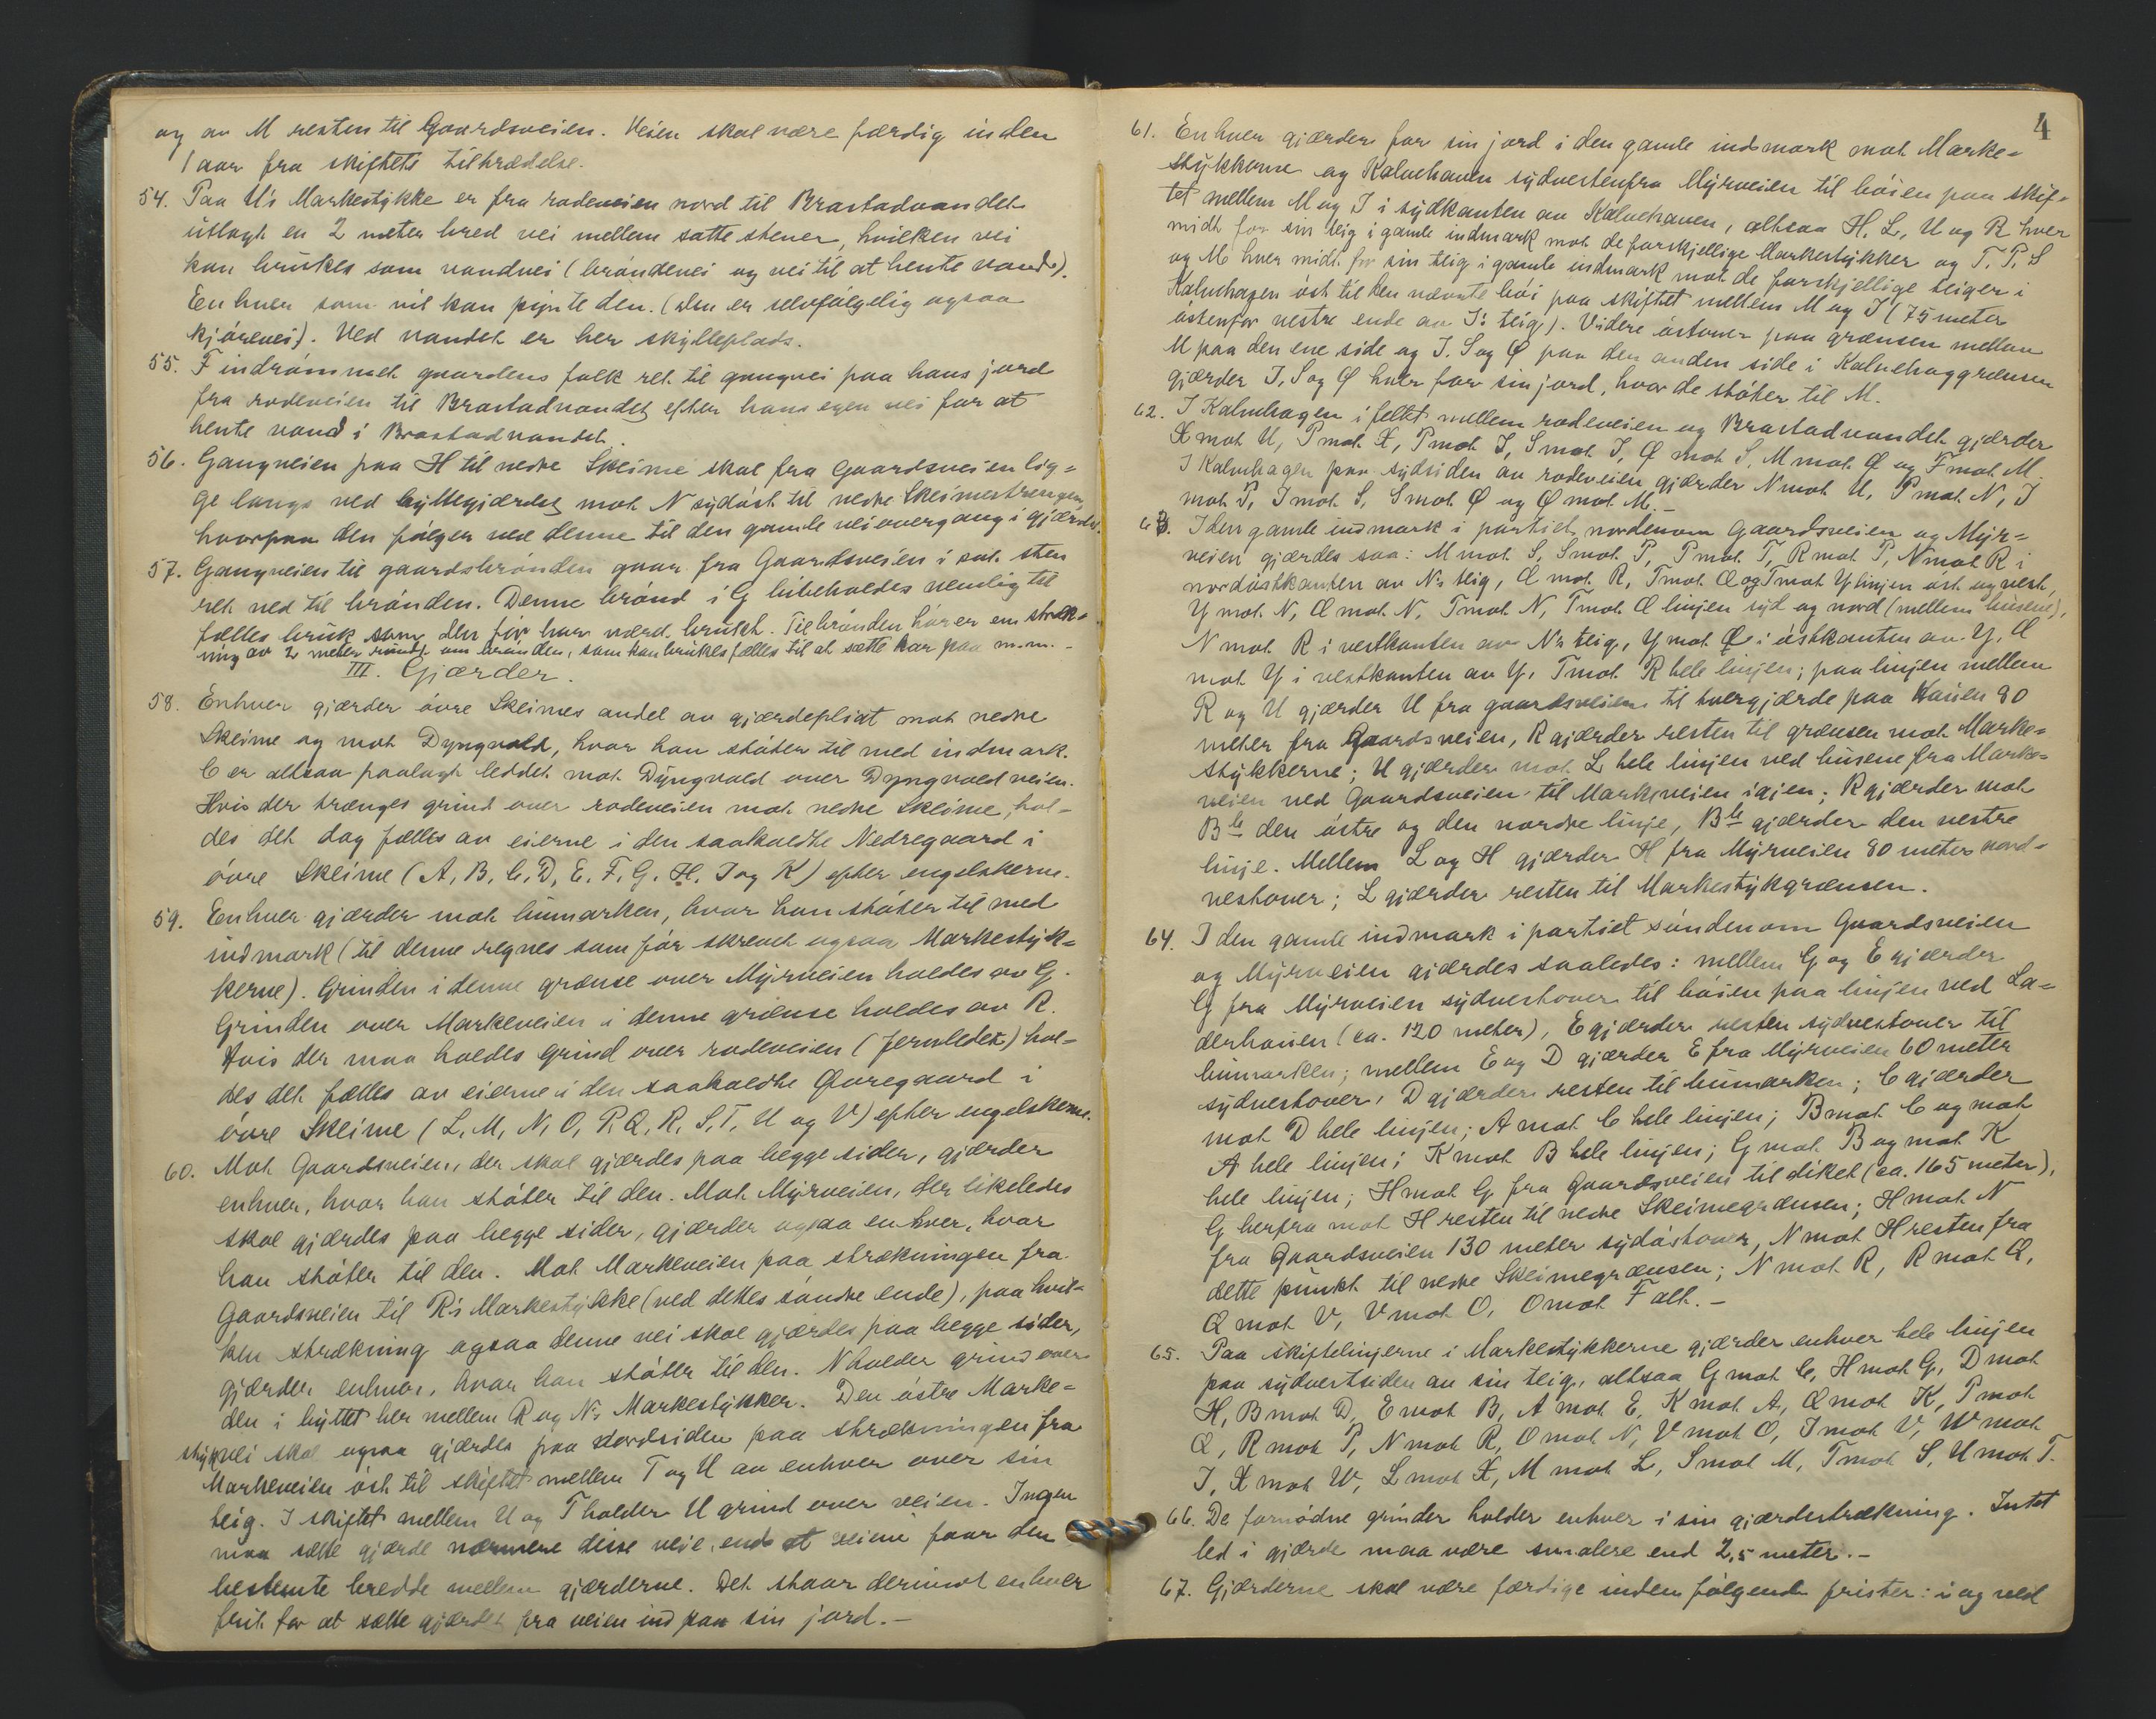 og av M resten til Gaardsveien. Veien skal være færdig inden
1 aar fra skiftets tiltrædelse.
54. Paa U's Markestykke er fra rodeveien nord til Brastadvandet
utlagt en 2 meter bred vei mellem satte stener, hvilken vei
kan brukes som vandvei (bröndevei og vei til at hente vand).
Enhver som vil kan pynte den. (den er selvfölgelig ogsaa
kjörevei). Ved vandet er her skylleplads.
55. F indrömmet gaardens folk ret til gangvei paa hans jord
fra rodeveien til Brastadvandet efter hans egen vei for at
hente vand i Brastadvandet.
56. Gangveien paa H til nedre Skeime skal fra Gaardsveien lig-
ge langs ved byttegjærdet mot N sydöst til nedre Skeimestrengen,
hvorpaa den fölger ved denne til den gamle veiovergang i gjærdet.
57. Gangveien til gaardsbrönden gaar fra Gaardsveien i sat. sten
ret ned til brönden. Denne brönd i G bibeholdes nemlig til
fælles bruk som den för har været brukt. Til brönden hörer en stræk-
ning av 2 meter rundt om brönden, som kan brukes fælles til at sætte kar paa m.m. -
III. Gjærder.
58. Enhver gjærder övre Skeimes andel av gjærdepligt mot nedre
Skeime og mot Dyngvold, hvor han stöter til med indmark.
C er altsaa paalagt leddet mot Dyngvold over Dyngvoldveien.
Hvis der trænges grind over rodeveien mot nedre Skeime, hol-
des det dog fælles av eierne i den saakaldte Nedregaard i
övre Skeime (A, B, C, D, E, F, G, H, I og K) efter engelskerne.
59. Enhver gjærder mot bumarken, hvor han stöter til med
indmark (til denne regnes som för skrevet ogsaa Markestyk-
kerne). Grinden i denne grænse over Myrveien holdes av G.
Grinden over Markeveien i denne grænse holdes av R.
Hvis der maa holdes grind over rodeveien (Jernleddet) hol-
des det fælles av eierne i den saakaldte Övregaard i
övre Skeime (L, M, N, O, P, Q, R, S, T, U og V) efter engelskerne.
60. Mot Gaardsveien, der skal gjærdes paa begge sider, gjærder
enhver, hvor han stöter til den. Mot Myrveien, der likeledes
skal gjærdes paa begge sider, gjærder ogsaa enhver, hvor
han stöter til den. Mot Markeveien paa strækningen fra
Gaardsveien til R's Markestykke (ved dettes söndre ende), paa hvil-
ken strækning ogsaa denne vei skal gjærdes paa begge sider,
gjærder enhver, hvor han stöter til den. N holder grind over
den i byttet her mellem R og N's Markestykker. Den östre Marke-
stykvei skal ogsaa gjærdes paa Nordsiden paa strækningen fra
Markeveien öst til skiftet mellem T og U av enhver over sin
teig. I skiftet mellem U og T holder U grind over veien. Ingen
maa sætte gjærde nærmere disse veie, end at veiene faar den
bestemte bredde mellem gjærderne. Det staar derimot enhver
frit for at sætte gjærdet fra veien ind paa sin jord. -
4
61. Enhver gjærder for sin jord i den gamle indmark mot Marke-
stykkerne og Kalvehaven sydvestenfra Myrveien til höien paa skif-
tet mellem M og I i sydkanten av Kalvehaven, altsaa H, L, U og R hver
midt for sin teig i gamle indmark mot de forskjellige Markestykker og T, P, S
og M hver midt for sin teig i gamle indmark mot de forskjellige teiger i
Kalvehagen öst til den nævnte höi paa skiftet mellem M og I (75 meter
östenfor vestre ende av I's teig). Videre östover paa grænsen mellem
M paa den ene side og I, S og Ø paa den anden side i Kalvehaggrænsen
gjærder I, S og Ø hver for sin jord, hvor de stöter til M.
62. I Kalvehagen i feltet mellem rodeveien og Brastadvandet gjærder
X mot U, P mot X, P mot I, S mot I, Ø mot S, M mot Ø og F mot M.
I Kalvehagen paa sydsiden av rodeveien gjærder N mot U, P mot N, I
mot P, I mot S, S mot Ø og Ø mot M. -
63. I den gamle indmark i partiet nordenom Gaardsveien og Myr-
veien gjærdes saa: M mot S, S mot P, P mot T, R mot P, N mot R i
nordöstkanten av N's teig, Q mot R, T mot Q og T mot Y linjen öst og vest,
Y mot N, Q mot N, T mot N, T mot Q linjen syd og nord (mellem husene),
N mot R i vestkanten av N's teig, Y mot Q i östkanten av Y, Q
mot Y i vestkanten av Y, T mot R hele linjen; paa linjen mellem
R og U gjærder U fra gaardsveien til tvergjærde paa Haüen 80
meter fra Gaardsveien, R gjærder resten til grænsen mot Marke-
stykkerne; U gjærder mot L hele linjen ved husene fra Marke-
veien ved Gaardsveien til Markeveien igjen; R gjærder mot
Ble den östre og den nordre linje, Ble gjærder den vestre
linje. Mellem L og H gjærder H fra Myrveien 80 meter nord-
vestover; L gjærder resten til Markestykgrænsen.
64. I den gamle indmark i partiet söndenom Gaardsveien
og Myrveien gjærdes saaledes: mellem G og E gjærder
G fra Myrveien sydvestover til höien paa linjen ved La-
derhauen (ca. 120 meter), E gjærder resten sydvestover til
bumarken; mellem E og D gjærder E fra Myrveien 60 meter
sydvestover, D gjærder resten til bumarken; C gjærder
mot D hele linjen; A mot C hele linjen; B mot C og mot
A hele linjen; K mot B hele linjen; G mot B og mot K
hele linjen; H mot G fra Gaardsveien til diket (ca. 165 meter),
G herfra mot H resten til nedre Skeimegrænsen; H mot N
fra Gaardsveien 130 meter sydöstover, N mot H resten fra
dette punkt til nedre Skeimegrænsen; N mot R, R mot Q,
Q mot V, V mot O, O mot F alt. -
65. Paa skiftelinjerne i Markestykkerne gjærder enhver hele linjen
paa sydvestsiden av sin teig, altsaa G mot C, H mot G, D mot
H, B mot D, E mot B, A mot E, K mot A, Q mot K, P mot
Q, R mot P, N mot R, O mot N, V mot O, I mot V, W mot
I, X mot W, L mot X, M mot L, S mot M, T mot S, U mot T.
66. De fornödne grinder holder enhver i sin gjærdestrækning. Intet
led i gjærde maa være smalere end 2,5 meter. -
67. Gjærderne skal være færdige inden fölgende frister: i og ved